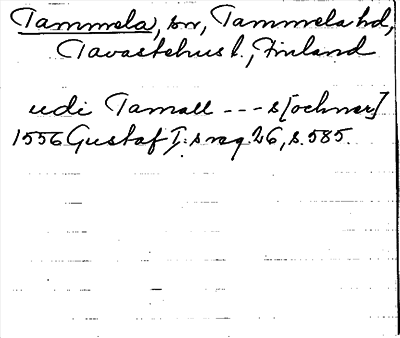 Tammela, sn, Tammela hd,
Tavastehus l., Finland
udi Tamall --- s[ochner]
1556 Gustaf I:s reg. 26, s. 585.